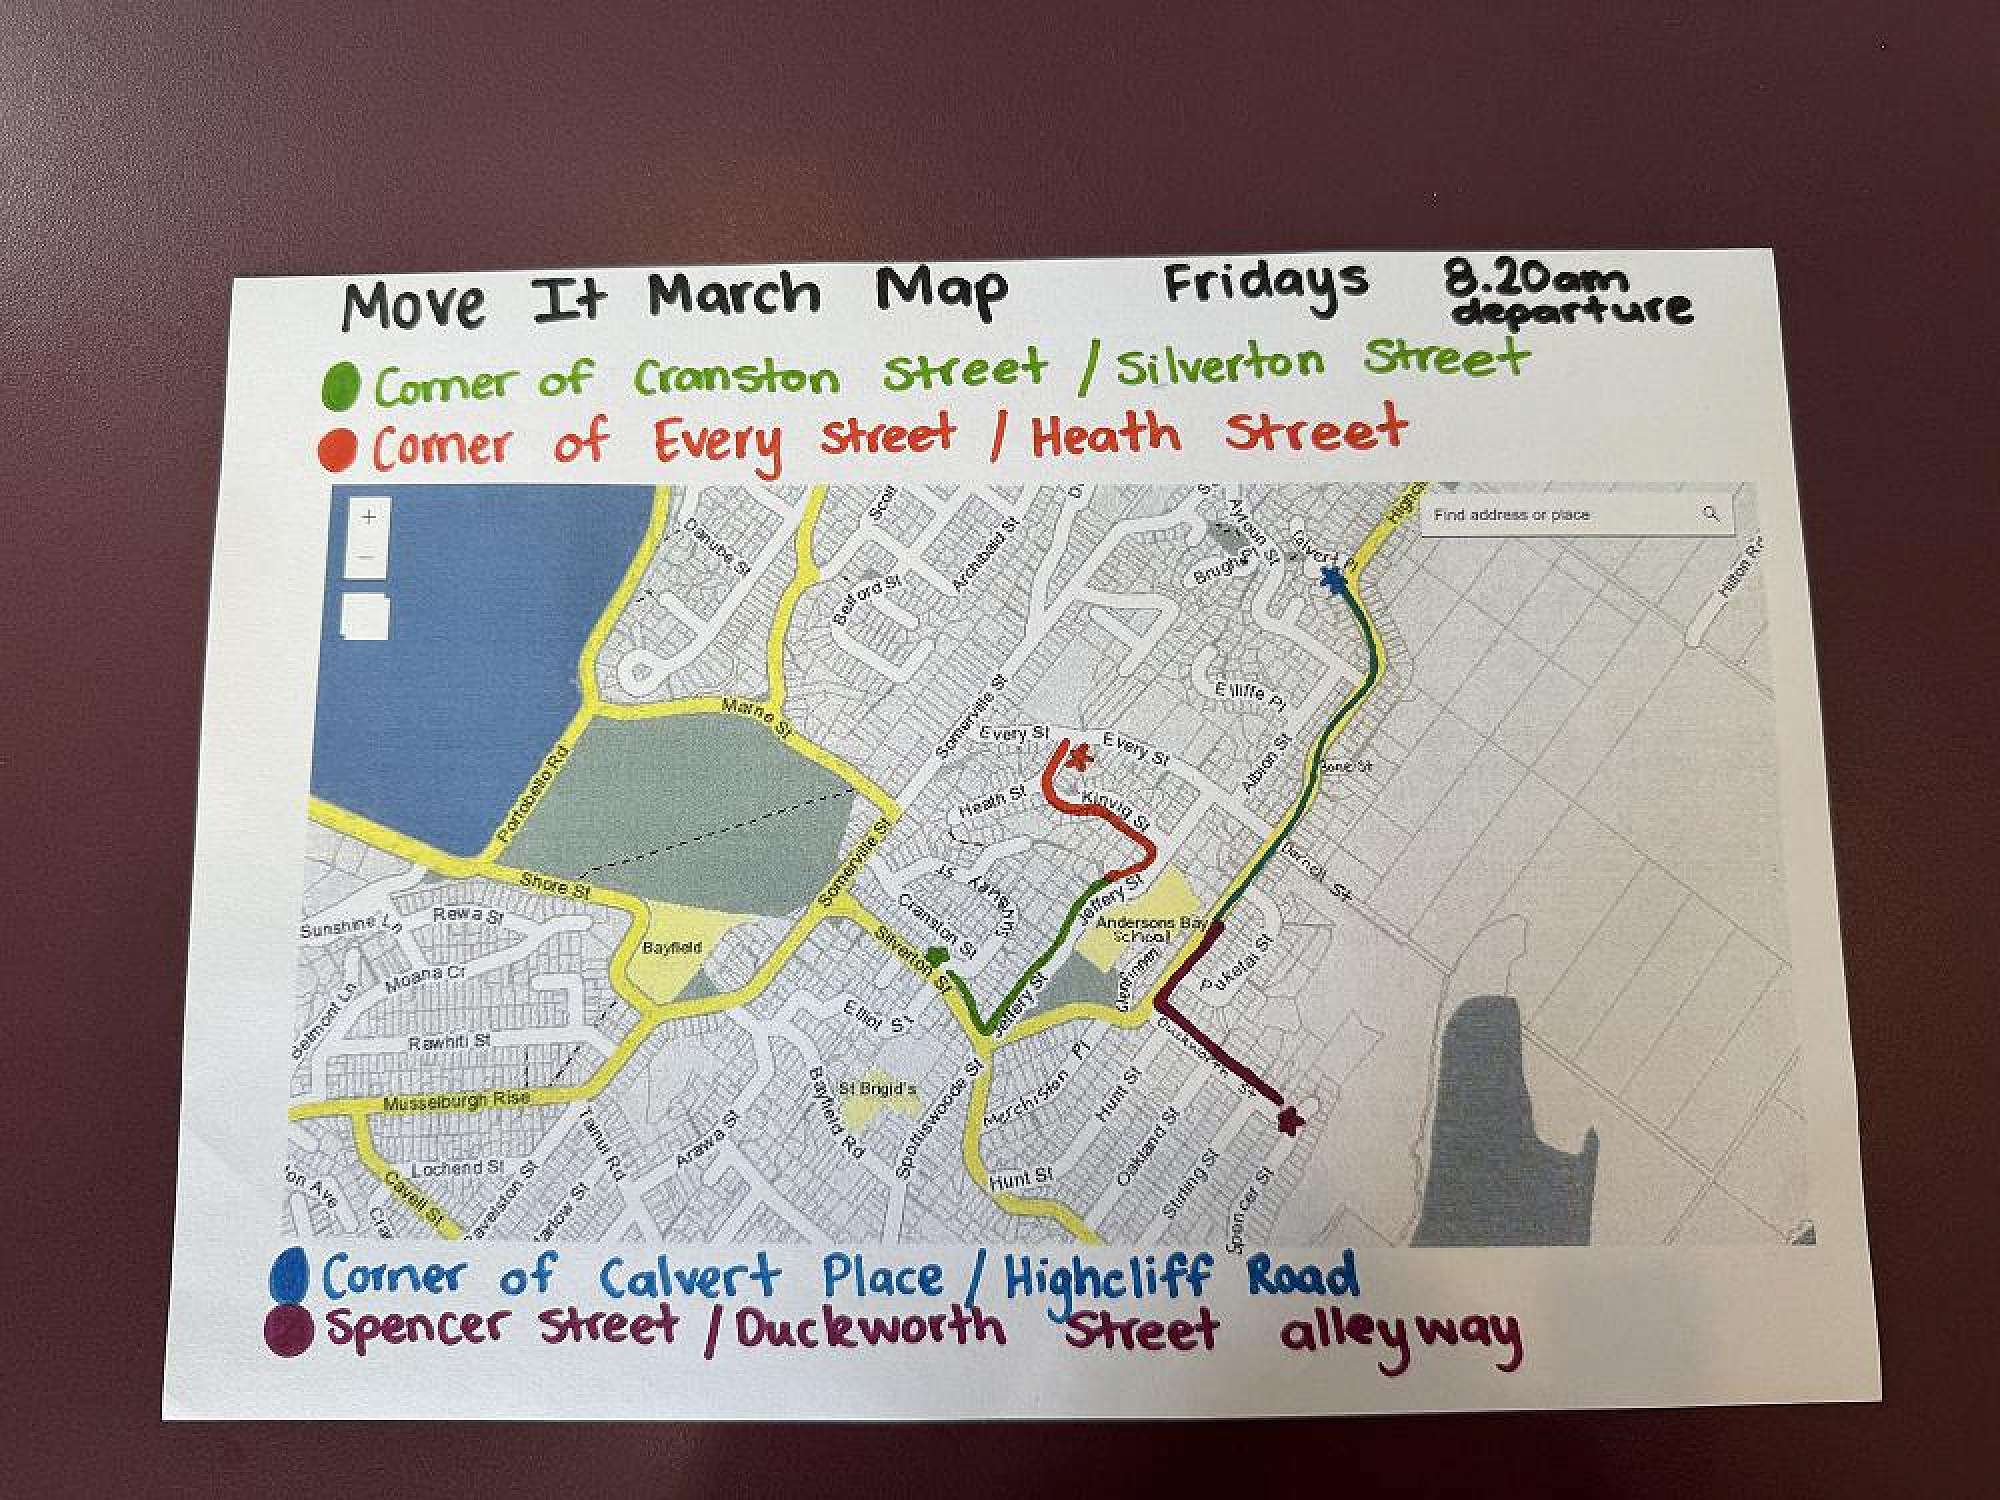 Move It March Map Fridays 8.20am departure
Corner of Cranston Street / Silverton Street
Corner of Every Street / Heath Street
Find address or place
+
Danube St
Belford St
Archibald St
Ayroun St
Calvert
Hilton Rd
Marne St
Somerville St
Every St
Every St
Elliffe Pl
Albion St
Portobello Rd
Heath St
Kinvig St
Darnell St
Shore St
Somerville St
Cranston St
Jeffery St
Andersons Bay School
Sunshine Ln
Rewa St
Bayfield
Silverton St
Puketai St
Moana Cr
Belmont Ln
Elliot St
Jeffery St
Rawhiti St
Musselburgh Rise
St Brigid's
Bayfield Rd
Spottiswoode St
Merchiston Pl
Hunt St
Tainui Rd
Arawa St
Lochend St
Cavell St
Hunt St
Oakland St
Stirling St
Spencer St
Corner of Calvert Place / Highcliff Road
Spencer Street / Duckworth Street alleyway